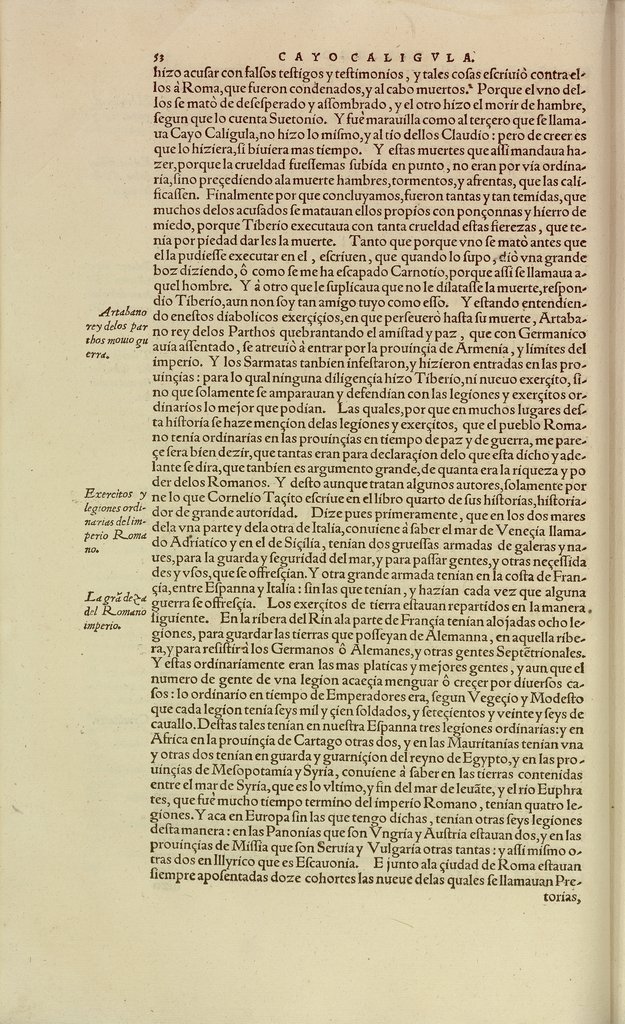 53 CAYO CALIGVLA.
hizo acusar con falsos testigos y testimonios, y tales cosas escriuiò contra el-
los à Roma, que fueron condenados, y al cabo muertos. Porque el vno del-
los se matò de desesperado y assombrado, y el otro hizo el morir de hambre,
segun que lo cuenta Suetonio. Y fuè marauilla como al terçero que se llama-
ua Cayo Caligula, no hizo lo mismo, y al tio dellos Claudio: pero de creer es
que lo hiziera, si biuiera mas tiempo. Y estas muertes que assi mandaua ha-
zer, porque la crueldad fuessemas subida en punto, no eran por vía ordina-
ria, sino preçediendo ala muerte hambres, tormentos, y afrentas, que las cali-
ficassen. Finalmente por que concluyamos, fueron tantas y tan temidas, que
muchos delos acusados se matauan ellos propios con ponçonnas y hierro de
miedo, porque Tiberio executaua con tanta crueldad estas fierezas, que te-
nía por piedad dar les la muerte. Tanto que porque vno se matò antes que
el la pudiesse executar en el, escriuen, que quando lo supo, diò vna grande
boz diziendo, ô como se me ha escapado Carnotio, porque assi se llamaua a-
quel hombre. Y à otro que le suplicaua que no le dilatasse la muerte, respon-
dio Tiberio, aun non soy tan amigo tuyo como esso. Y estando entendien-
do enestos diabolicos exerçiçios, en que perseuerò hasta su muerte, Artaba-
no rey delos Parthos quebrantando el amistad y paz, que con Germanico
auia assentado, se atreuiò à entrar por la prouinçia de Armenia, y limites del
imperio. Y los Sarmatas tanbien infestaron, y hizieron entradas en las pro-
uinçias: para lo qual ninguna diligençia hizo Tiberio, ni nueuo exerçito, si-
no que solamente se amparauan y defendian con las legiones y exerçitos or-
dinarios lo mejor que podian. Las quales, por que en muchos lugares des-
ta historia se haze mençion delas legiones y exerçitos, que el pueblo Roma-
no tenia ordinarias en las prouinçias en tiempo de paz y de guerra, me pare-
çe sera bien dezir, que tantas eran para declaraçion delo que esta dicho y ade-
lante se dira, que tanbien es argumento grande, de quanta era la riqueza y po
der delos Romanos. Y desto aunque tratan algunos autores, solamente por
ne lo que Cornelio Taçito escriue en el libro quarto de sus historias, historia-
dor de grande autoridad. Dize pues primeramente, que en los dos mares
dela vna parte y dela otra de Italia, conuiene à saber el mar de Veneçia llama-
do Adriatico y en el de Siçilia, tenian dos gruessas armadas de galeras y na-
ues, para la guarda y seguridad del mar, y para passar gentes, y otras neçessida
des y vsos, que se offresçian. Y otra grande armada tenian en la costa de Fran-
çia, entre Espanna y Italia: sin las que tenian, y hazian cada vez que alguna
guerra se offresçia. Los exerçitos de tierra estauan repartidos en la manera
siguiente. En la ribera del Rin ala parte de Françia tenian alojadas ocho le-
giones, para guardar las tierras que posseyan de Alemanna, en aquella ribe-
ra, y para resistir à los Germanos ô Alemanes, y otras gentes Septẽtrionales.
Y estas ordinariamente eran las mas platicas y mejores gentes, y aun que el
numero de gente de vna legion acaeçia menguar ô creçer por diuersos ca-
sos: lo ordinario en tiempo de Emperadores era, segun Vegeçio y Modesto
que cada legion tenia seys mil y çien soldados, y seteçientos y veinte y seys de
cauallo. Destas tales tenian en nuestra Espanna tres legiones ordinarias: y en
Africa en la prouinçia de Cartago otras dos, y en las Mauritanias tenian vna
y otras dos tenian en guarda y guarniçion del reyno de Egypto, y en las pro-
uinçias de Mesopotamia y Syria, conuiene à saber en las tierras contenidas
entre el mar de Syria, que es lo vltimo, y fin del mar de leuãte, y el rio Euphra
tes, que fuè mucho tiempo termino del imperio Romano, tenian quatro le-
giones. Y aca en Europa sin las que tengo dichas, tenian otras seys legiones
desta manera: en las Panonias que son Vngria y Austria estauan dos, y en las
prouinçias de Missia que son Seruia y Vulgaria otras tantas: y assi mismo o-
tras dos en Illyrico que es Escauonia. E junto ala çiudad de Roma estauan
siempre aposentadas doze cohortes las nueue delas quales se llamauan Pre-
torias,
Artabano
rey delos par
thos mouio gu
erra.
Exercitos y
legiones ordi-
narias del im-
perio Roma
no.
La grãdeza
del Romano
imperio.